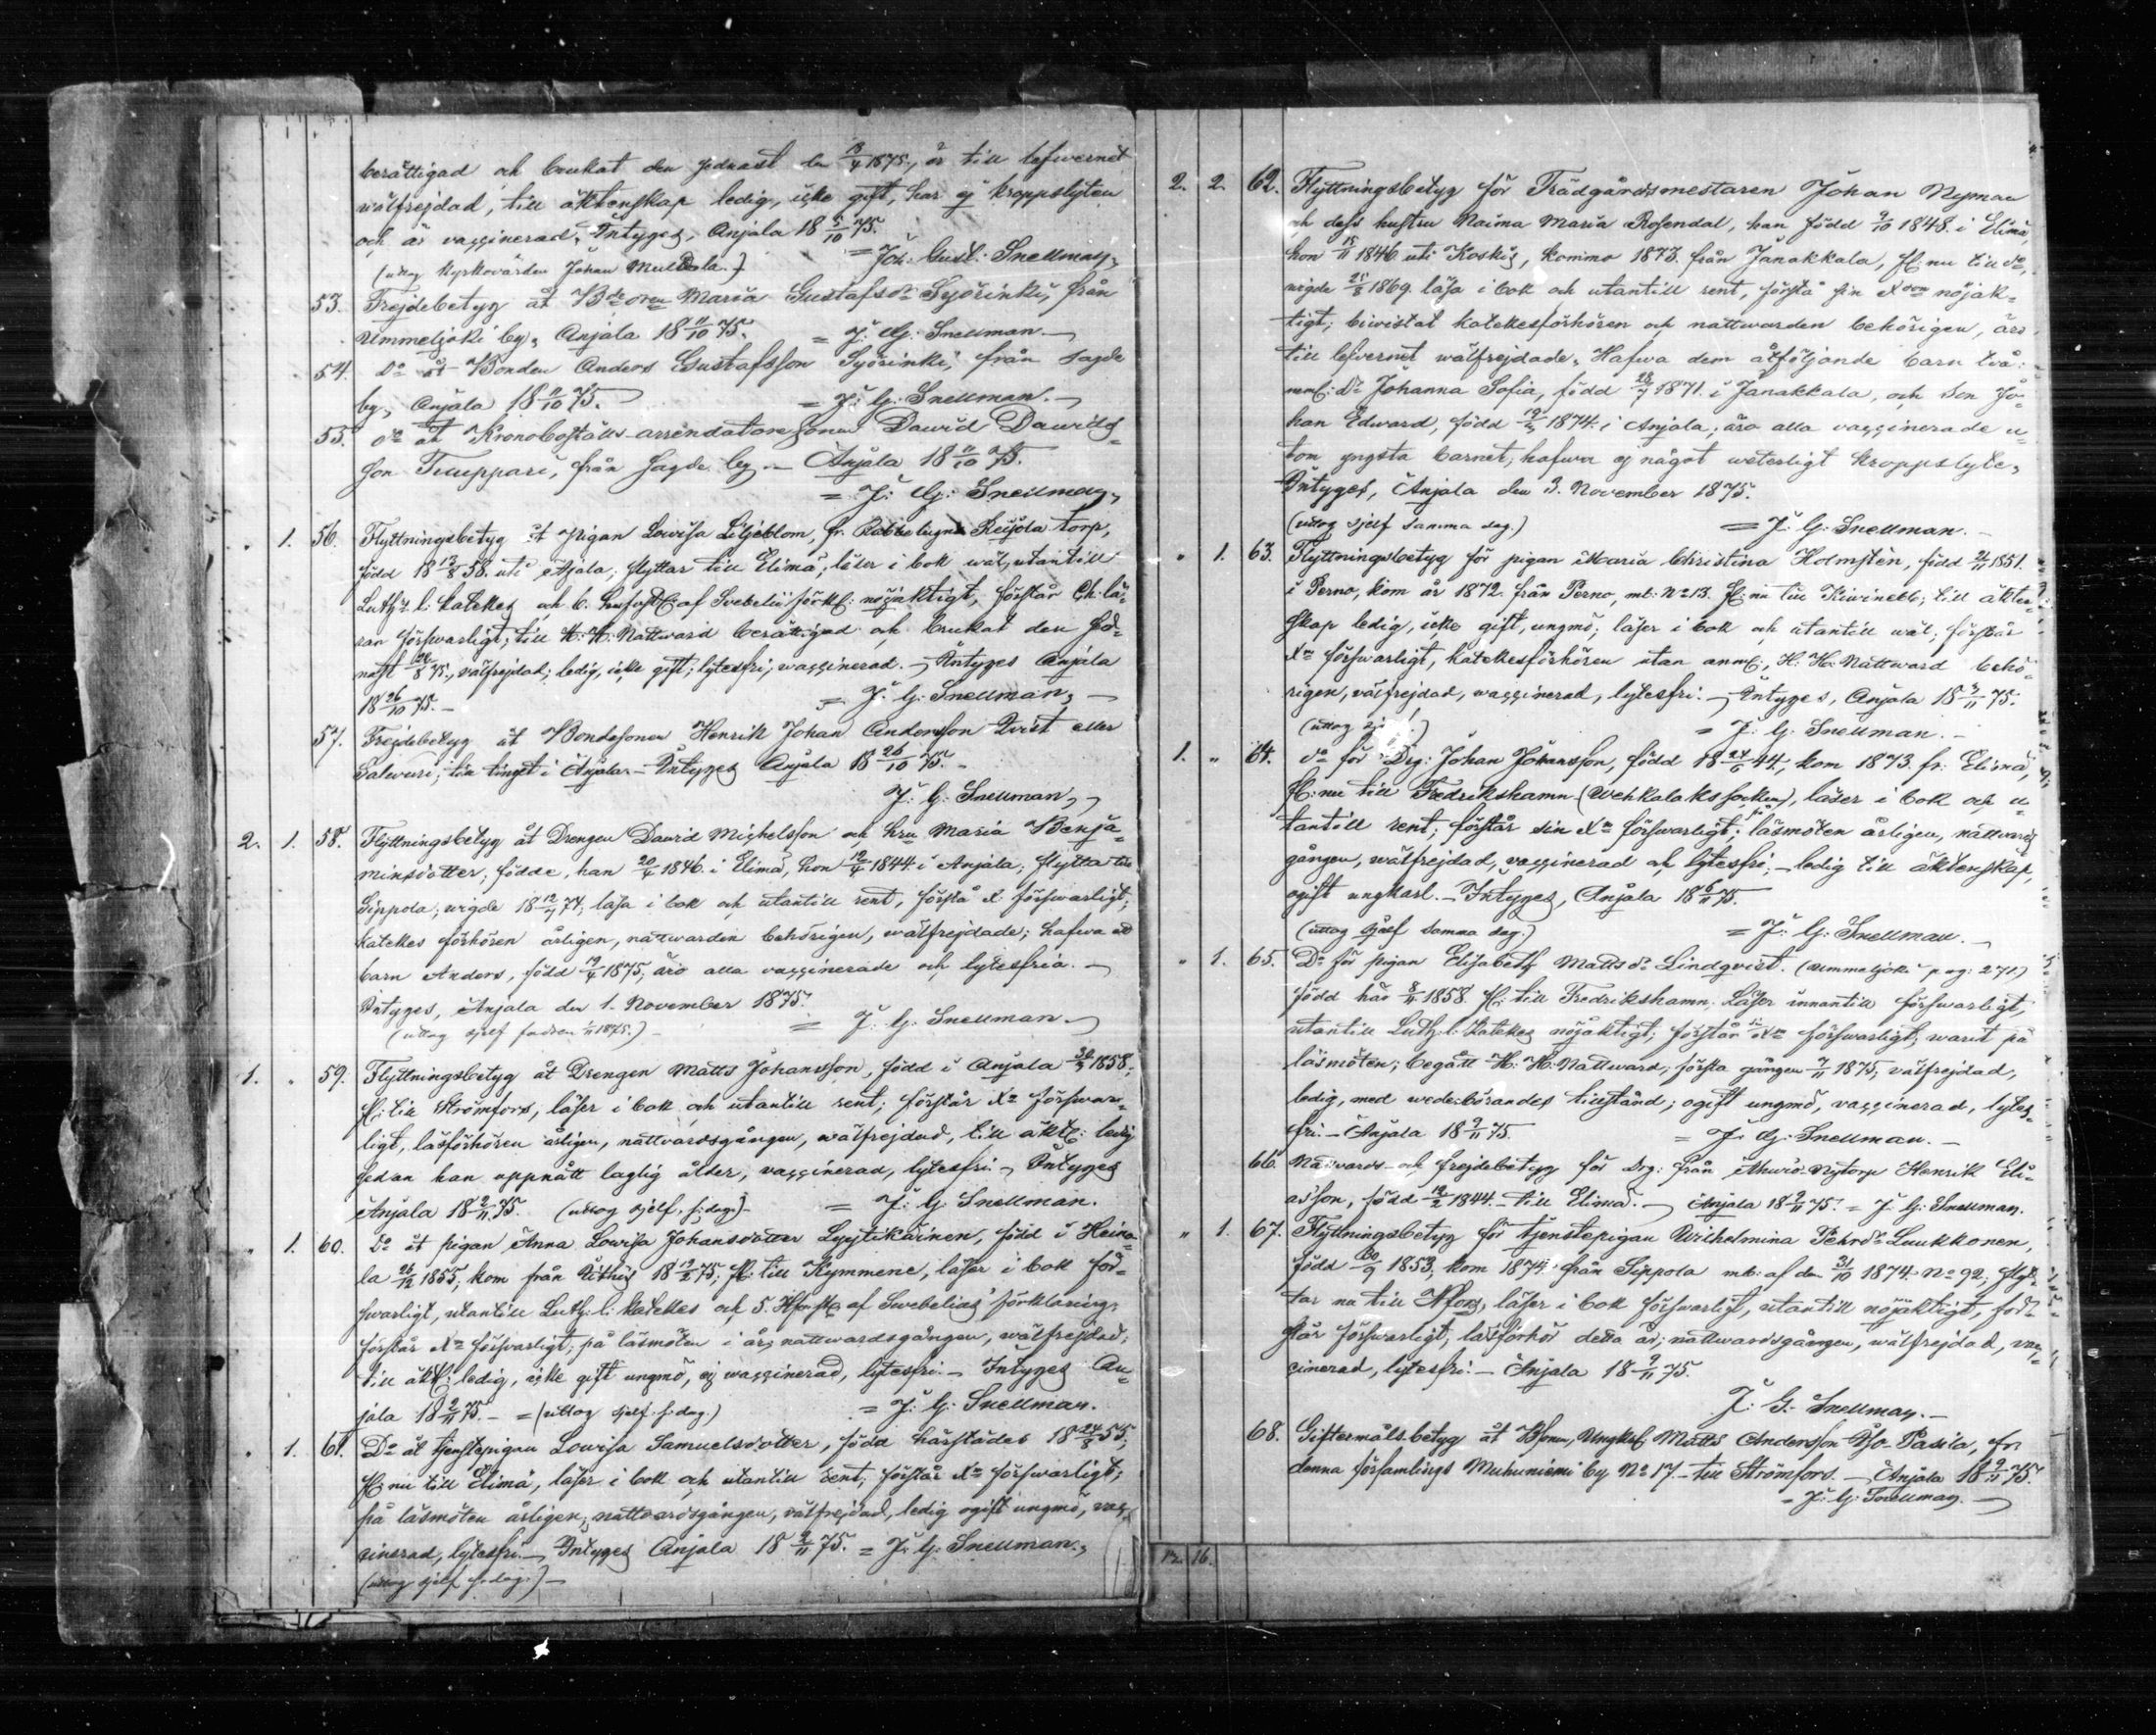 berättigad och brukat den sednast den 18/4 1875, är till lefwernet
wälfrejdad, till äktenskap ledig, icke gift, har ej kroppslyten
och är vaccinerad, Intyges, Anjala 18 5/10 75.
= Joh: Gust: Snellman,
(uttog Kyrkovärden Johan Multala.)
53. Frejdebetyg åt Maria Gustafsdr Sysrinki, från
Ummeljoki by, Anjala 18 11/10 75. = J: G: Snellman. —
54. Do åt Bonden Anders Gustafsson Syörinki, från sagde
by, Anjala 18 11/10 75. = J: G: Snellman. —
55. Do åt Kronobostälts-arrendatoresonen Dawid Dawids=
son Tuuppari, från sagde by. — Anjala 18 11/10 75.
= J: G: Snellman,
1. 56. Flyttningsbetyg åt pigan Lowisa Liljeblom, fr. Rabbelugn Reijola torp,
född 18 13/8 58. uti Anjala; flyttar till Elimä; läser i bok wäl, utantill
Luth: l: katekes och 6. af Svebelii förkl: nöjaktigt, förstår Ch: lä=
ran försvarligt; till H: H: Nattward berättigad och brukat den sed=
nast 8 75., wälfrejdad; ledig, icke gift; lytesfri, waccinerad. — Intyges Anjala
18 26/10 75. — = J: G: Snellman, —
57. Frejdebetyg åt Bondesonen Henrik Johan Andersson Qvist eller
till tinget i Anjala. — Intyges Anjala 18 26/10 75. —
J: G: Snellman, —
2. 1. 58. Flyttningsbetyg åt Drengen Dawid Michelsson och hru Maria Benja=
minsdotter; födde, han 20/4 1846. i Elimä, hon 1844. i Anjala; flytta till
Sippola; wigde 18 74; läsa i bok och utantill rent, förstå X försvarligt;
katekes förhören årligen, nattwarden behörigen, wälfrejdade; hafwa ett
barn Anders, född 19/4 1875, äro alla vaccinerade och lytesfria. —
Intyges, Anjala den 1. November 1875.
(uttog sjelf 1875.) — = J: G: Snellman. —
1. " 59. Flyttningsbetyg åt Drengen Matts Johansson, född i Anjala 1858;
fl: till Strömfors, läser i bok och utantill rent; förstår Xn försvar=
ligt, läsförhören årligen, nattvardsgången, wälfrejdad, till äkt: ledig
sedan han uppnått laglig ålder, vaccinerad, lytesfri. — Intyges
Anjala 18 2/11 75. (uttog sjelf. s. dag.) — = J: G: Snellman.
" 1. 60. Do åt pigan Anna Lowisa Johansdotter Lyytikäinen, född i Heino=
la 26/12 1855; kom från Uthis 18 75; fl: till Kymmene, läser i bok för=
swarligt, utantill Luth: l: katekes och 5. af Swebelius' förklaring;
förstår Xn försvarligt; på läsmöten i år; nattwardsgången, wälfrejdad;
till äkt: ledig, icke gift ungmö, ej waccinerad, lytesfri. — Intyges An=
jala 18 2/11 75. — = (uttog sjelf. s. dag.) = J: G: Snellman.
" 1. 61. Do åt tjenstepigan Lowisa Samuelsdotter, född härstädes 18 24/8 55;
fl: nu till Elimä, läser i bok och utantill rent, förstår Xn försvarligt;
på läsmöten årligen; nattvardsgången, wälfrejdad, ledig ogift ungmö, vac=
cinerad, lytesfri. — Intyges Anjala 18 2/11 75. = J: G: Snellman,
(uttog sjelf s. dag.) —
2. 2. 62. Flyttningsbetyg för Trädgårdsmestaren Johan Nyman
och dess hustru Naima Maria Rosendal, han född 9/10 1848. i Elimä,
hon 15/11 1846 uti Koskis, kommo 1873. från Janakkala, fl: nu till do,
wigde 25/8 1869. läsa i bok och utantill rent, förstå sin Xdom nöjak=
tigt; biwistat katekesförhören och nattwarden behörigen, äro
till lefvernet wälfrejdade. Hafwa dem åtföljande barn två:
nml: dr Johanna Sofia, född 1871. i Janakkala, och son Jo=
han Edward, född 1874. i Anjala; äro alla vaccinerade u=
tom yngsta barnet, hafwa ej något weterligt kroppslyte,
Intyges, Anjala den 3. November 1875.
(uttog sjelf samma dag.) = J: G: Snellman. —
" 1. 63. Flyttningsbetyg för pigan Maria Christina Holmstén, född 1851.
i Perno, kom år 1872. från Perno, mb: No 13. fl: nu till Kiwinebb; till äkten=
skap ledig, icke gift, ungmö; läser i bok och utantill wäl; förstår
Xn försvarligt, katekesförhören utan anm:, H: H: Nattward behö=
rigen, wälfrejdad, waccinerad, lytesfri. — Intyges, Anjala 18 75.
(uttog) = J: G: Snellman. —
1. " 64. do för Drg: Johan Johansson, född 18 24/6 44., kom 1873. fr. Elimä,
fl: nu till Fredrikshamn (Wehkalaks socken), läser i bok och u=
tantill rent; förstår sin Xn försvarligt; på läsmöten årligen, nattvards
gången, wälfrejdad, vaccinerad och lytesfri; — ledig till äktenskap,
ogift ungkarl. — Intyges, Anjala 18 6/11 75.
(uttog sjelf samma dag.) = J: G: Snellman. —
" 1. 65. Do för pigan Elisabeth Matts dr Lindqvist. (Ummeljoki pag: 271.)
född här 8/11 1858. fl: till Fredrikshamn. Läser innantill försvarligt,
utantill Luth: l: Katekes nöjaktigt; förstår Xn försvarligt; warit på
läsmöten; begått H: H: Nattward; första gången 1875, wälfrejdad,
ledig, med wederbörandes tillstånd; ogift ungmö, vaccinerad, lytes=
fri. — Anjala 18 9/11 75. = J: G: Snellman. —
66. Nattvards- och frejdebetyg för Drg: från Nytorp Henrik Eli=
asson, född 1844. — till Elimä. — Anjala 18 9/11 75. = J: G: Snellman.
" 1. 67. Flyttningsbetyg för tjenstepigan Wilhelmina Pehrsdr Luukkonen,
född 1853, kom 1874. från Sippola mb: af den 31/10 1874. No 92; flyt=
tar nu till H:fors, läser i bok försvarligt, utantill nöjaktigt, för=
står försvarligt; läsförhör detta år; nattwardsgången, wälfrejdad, vac=
cinerad, lytesfri. — Anjala 18 9/11 75.
J: G: Snellman. —
68. Giftermåls betyg åt Ungkarl Matts Andersson Pasila, fr.
denna församlings Muhuniemi by No 17. — till Strömfors. — Anjala 18 9/11 75.
= J: G: Snellman. —
12. 16.